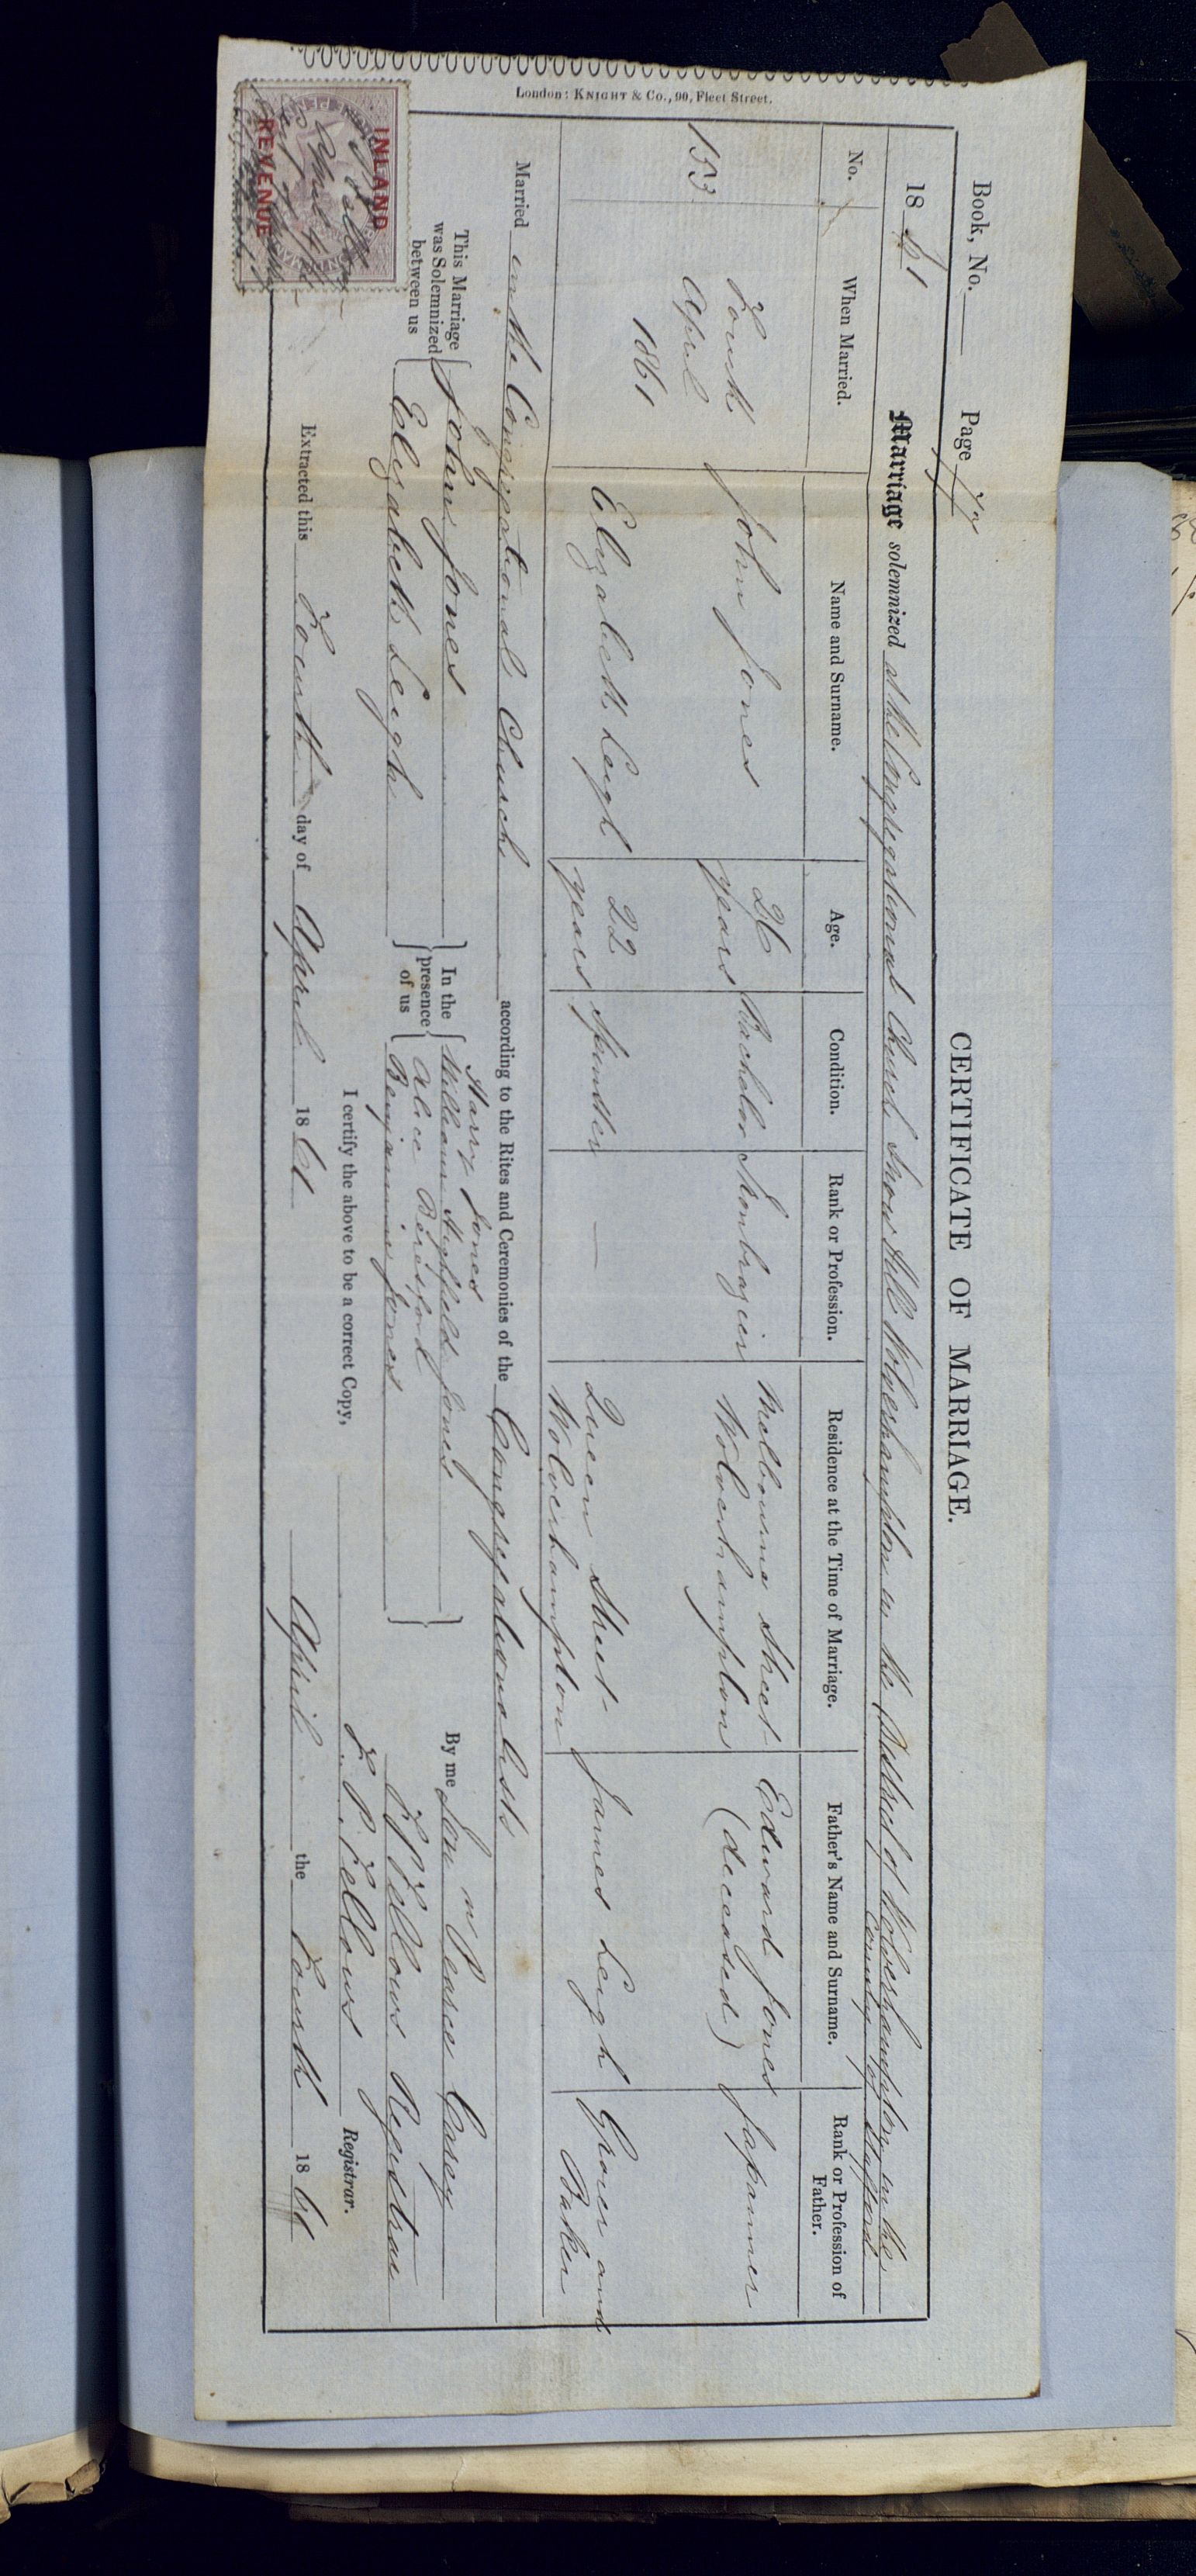 London: KNIGHT & Co., 90, Fleet Street.
Book, No. Page 77
CERTIFICATE OF MARRIAGE.
1861 Marriage solemnized at the Congregational Church Snow Hill Wolverhampton in the District of Wolverhampton in the
County of Stafford
No. When Married. Name and Surname. Age. Condition. Rank or Profession. Residence at the Time of Marriage. Father's Name and Surname. Rank or Profession of Father.
153 Fourth April 1861 John Jones 26 years Bachelor Ironbrazier Melbourne Street Wolverhampton Edward Jones (deceased) Japanner
Elizabeth Leigh 22 years Spinster — Queen Street Wolverhampton James Leigh Grocer and Baker
Married in the Congregational Church according to the Rites and Ceremonies of the Congregationalists
This Marriage was Solemnized between us
John Jones
Elizabeth Leigh
In the presence of us
Harry Jones
William Highfield Jones
Alice Beresford
Benjamin Jones
By me Jon m Pearce Casey
F P Fellows Registrar
I certify the above to be a correct Copy,
F. P. Fellows Registrar.
Extracted this Fourth day of April 1861
April the Fourth 1861
INLAND
REVENUE
April 4